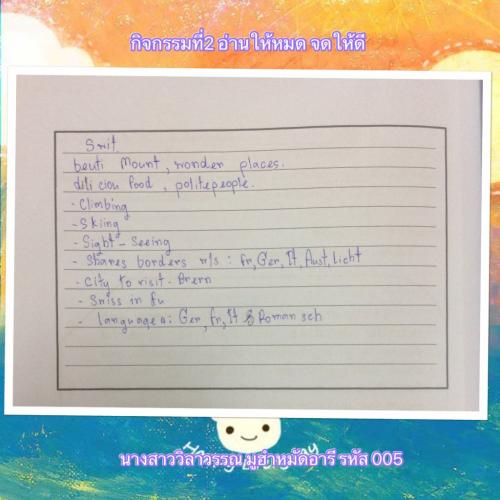 กิจกรรมที่2 อ่านให้หมด จดให้ดี
Swit.
beuti Mount, wonder places.
dili ciou food, polite people.
- Climbing
- Skiing
- Sight - Seeing
- Shares borders w/s : fr, Ger, It, Aust, Licht
- City to visit - Brern
- Sniss in Eu
- languages: Ger, fr, It & Roman sch
นางสาววิลาวรรณ มูฮำหมัดอารี รหัส 005